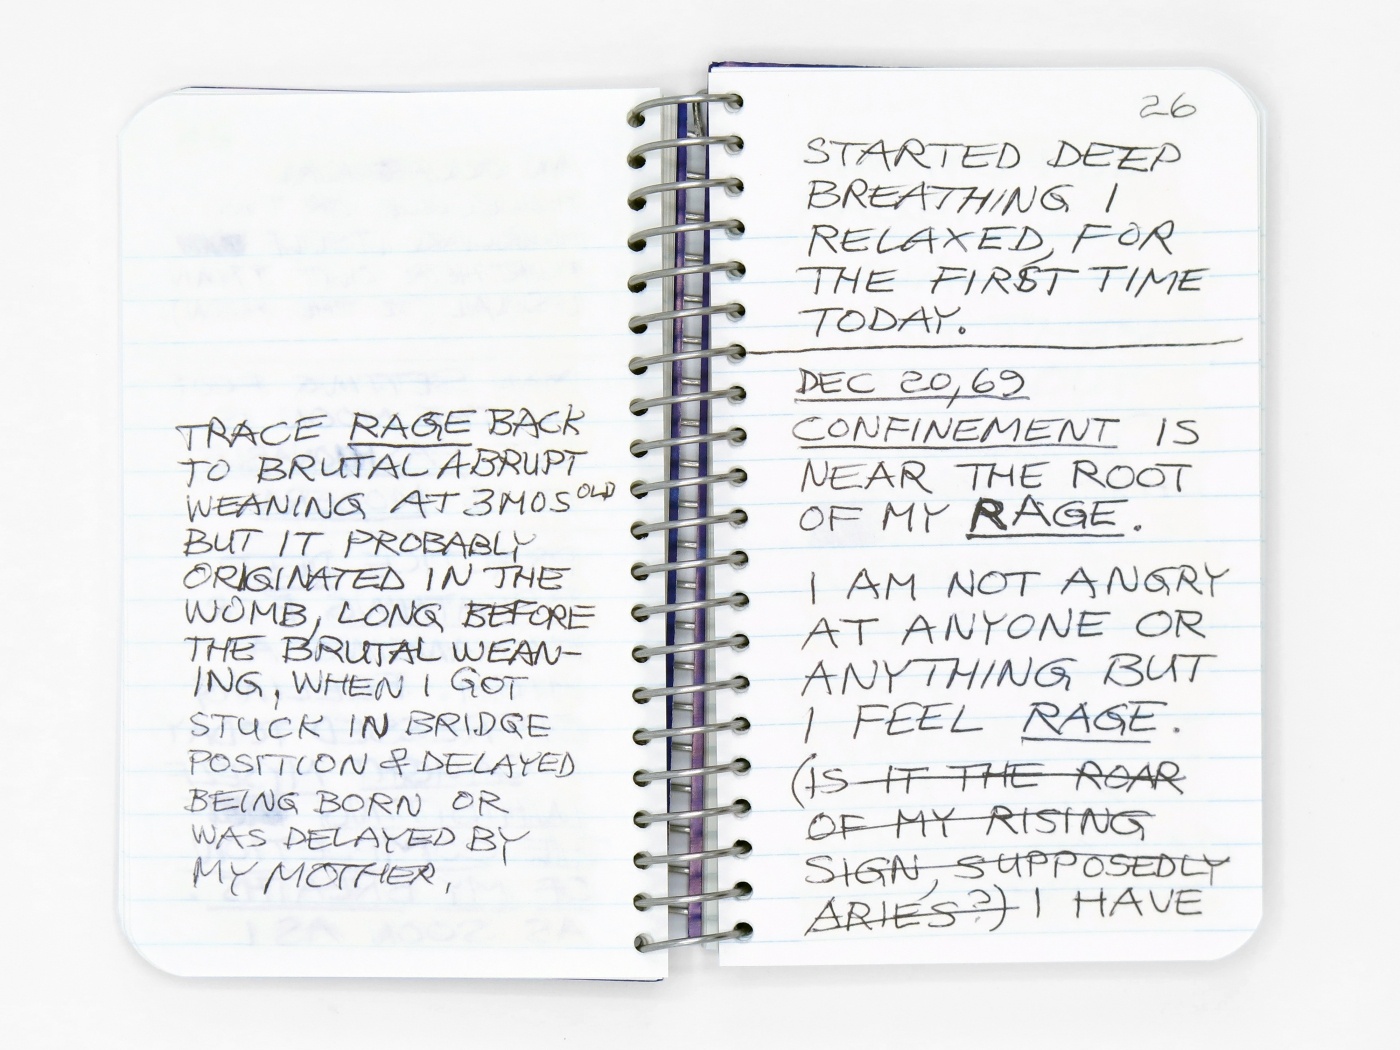 TRACE RAGE BACK
TO BRUTAL ABRUPT
WEANING AT 3 MOS OLD
BUT IT PROBABLY
ORIGINATED IN THE
WOMB, LONG BEFORE
THE BRUTAL WEAN-
ING, WHEN I GOT
STUCK IN BRIDGE
POSITION & DELAYED
BEING BORN OR
WAS DELAYED BY
MY MOTHER.
26
STARTED DEEP
BREATHING I
RELAXED, FOR
THE FIRST TIME
TODAY.
DEC 20, 69
CONFINEMENT IS
NEAR THE ROOT
OF MY RAGE.
I AM NOT ANGRY
AT ANYONE OR
ANYTHING BUT
I FEEL RAGE.
(IS IT THE ROAR
OF MY RISING
SIGN, SUPPOSEDLY
ARIES?) I HAVE